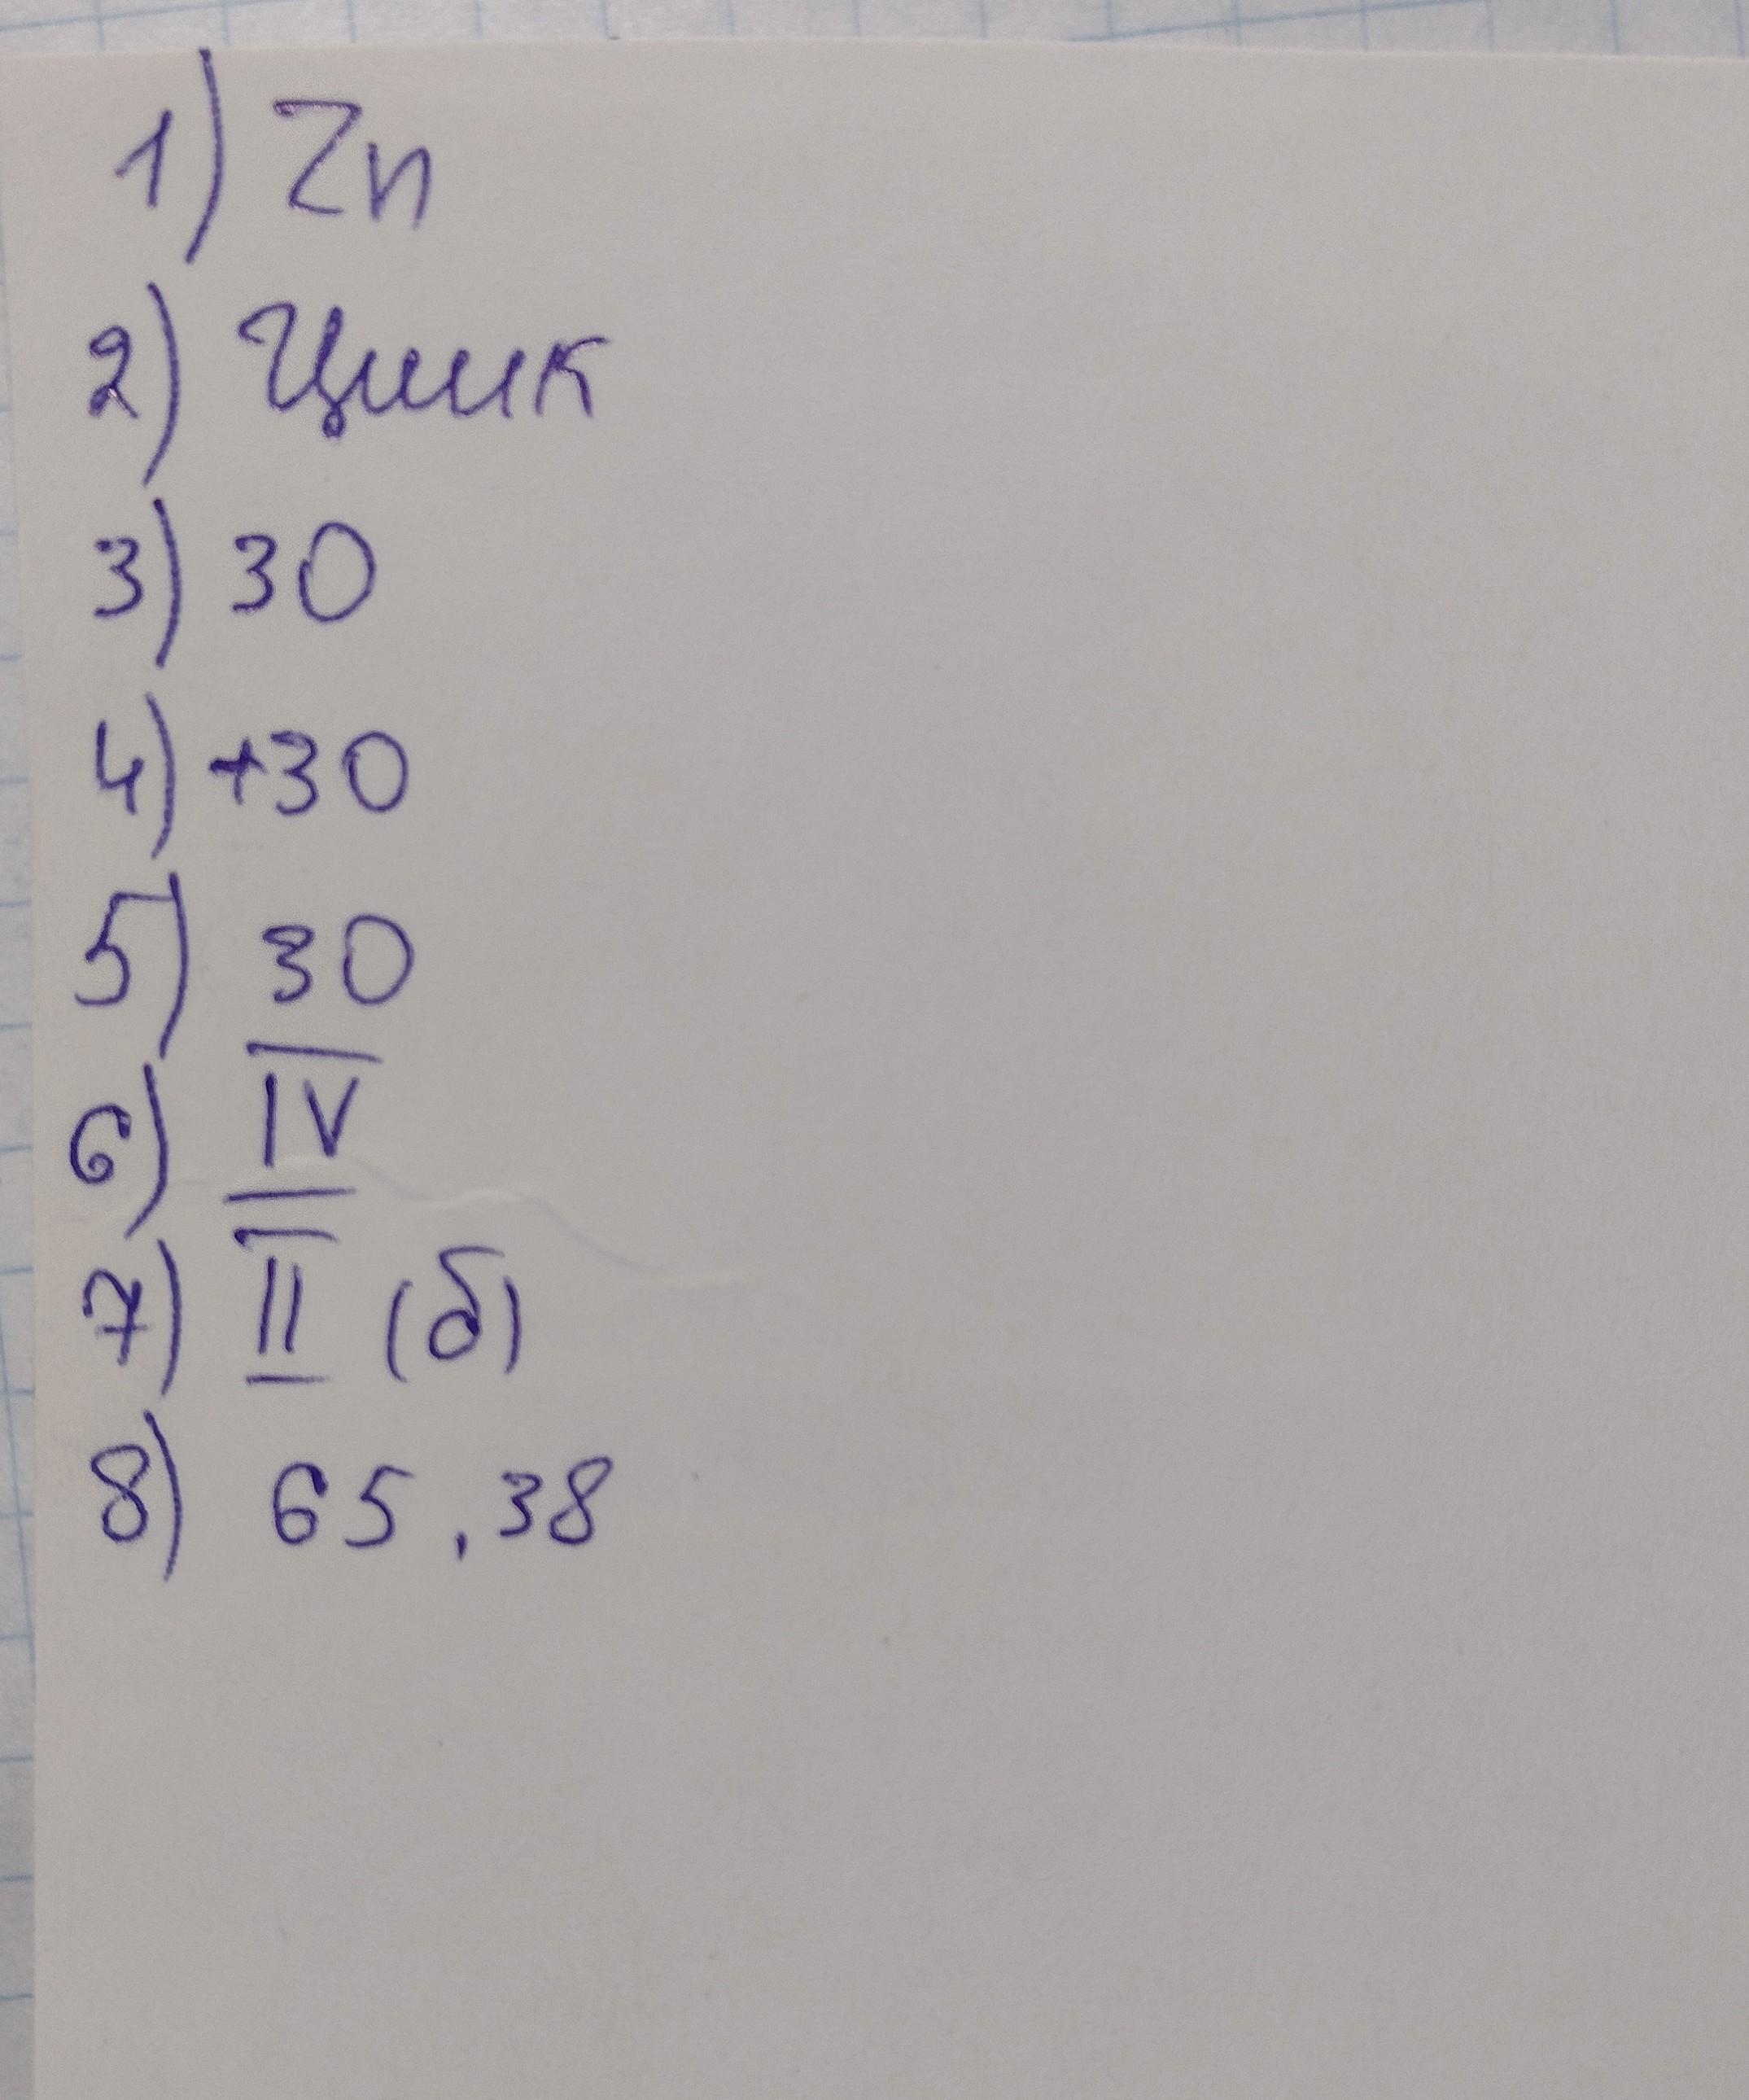 1) Zn
2) Цинк
3) 30
4) +30
5) 30
6) IV
7) II (б)
8) 65,38